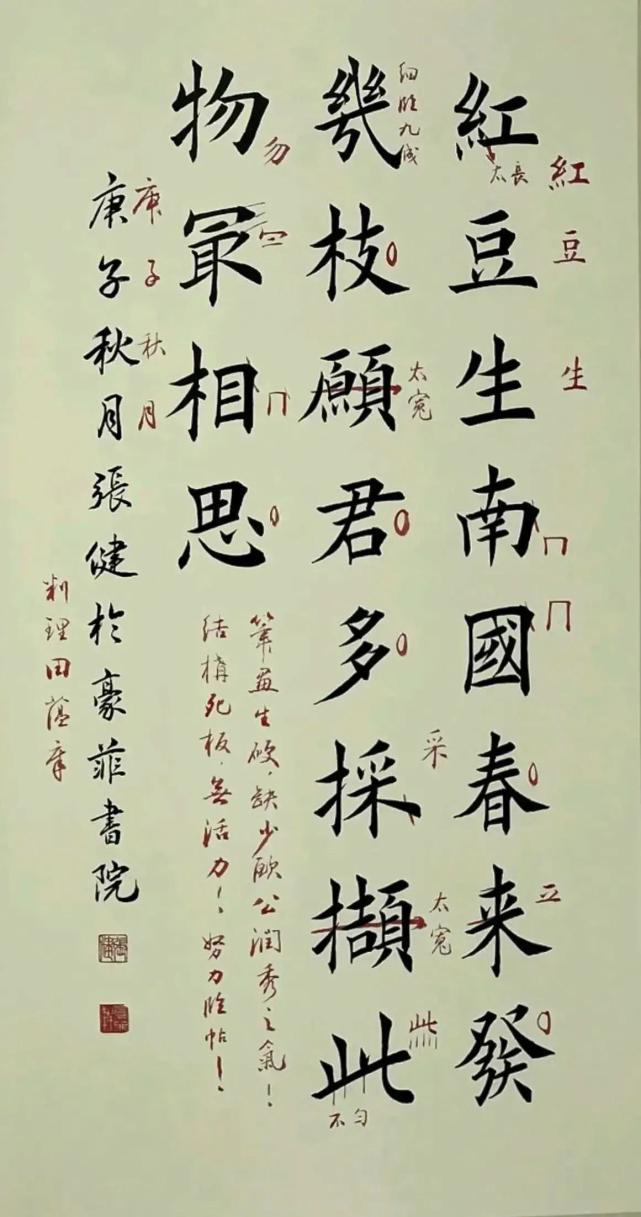 紅豆生南國春来發
幾枝願君多採擷此
物冣相思
庚子秋月張健於豪菲書院
紅
豆
生
太長
立
細臨九成
太寬
采
太寬
此
不匀
勿
筆畫生硬，缺少歐公潤秀之氣！
結構死板，無活力！努力臨帖！
庚子秋月